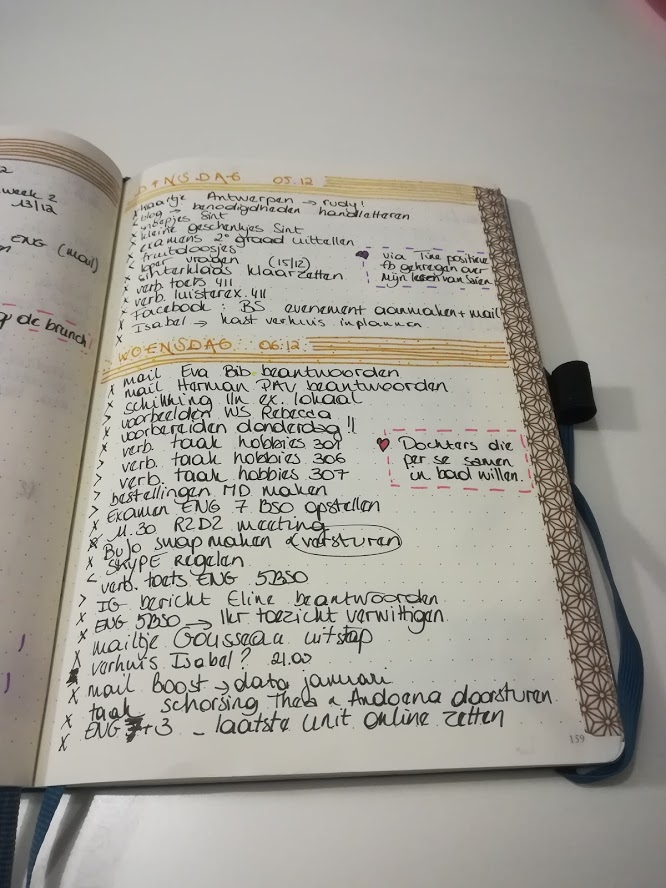 2
week 2
13/12
ENG (mail)
en
de brunch!
DINSDAG 05.12
kaartje Antwerpen → rudy!
blog → benodigdheden handletteren
Sint
kleine geschenkjes Sint
examens 2° graad uittellen
fruitdoosjes
vragen (15/12)
sinterklaas klaarzetten
verb. toets 411
verb. luisterex. 411
Facebook: BS evenement aanmaken + mail
Isabel → kast verhuis inplannen
via Tine positieve
fb gekregen over
mijn van
WOENSDAG 06.12
x mail Eva Bib beantwoorden
x mail Herman PAV beantwoorden
x schikking lln ex. lokaal
> voorbeelden WS Rebecca
x voorbereiden donderdag !!
x verb. taak hobbies 301
> verb. taak hobbies 306
> verb. taak hobbies 307
> bestellingen MD maken
> Examen ENG 7 BSO opstellen
x 11.30 R2D2 meeting
x BuJo swap maken & versturen
x SKYPE regelen
< verb. toets ENG 5BSO
> IG bericht Eline beantwoorden
x ENG 5BSO → lkr toezicht verwittigen
x mailtje uitstap
x verhuis Isabel? 21.00
x mail Boost → data januari
x taak schorsing Thea & Andoena doorsturen
x ENG + 3 - laatste unit online zetten
Dochters die
per se samen
in bad willen.
159